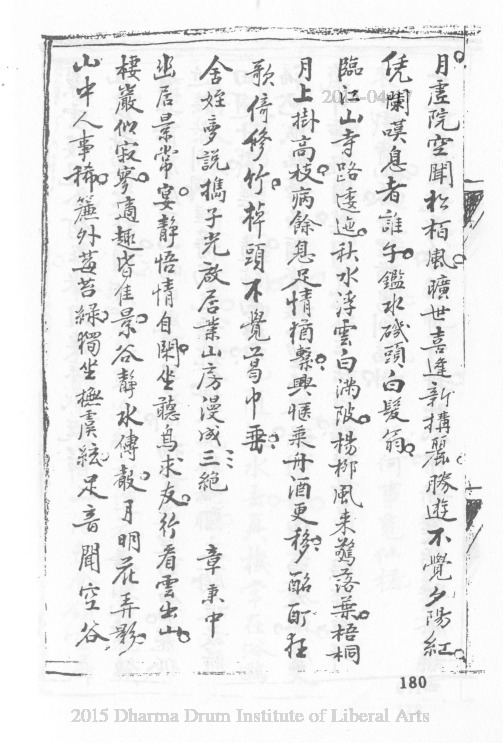 月虛院空聞松栢風曠世喜逢新搆麗勝遊不覺夕陽紅
凭闌嘆息者誰午鑑水磯頭白髮翁
臨江山寺路逶迤秋水浮雲白滿陂楊柳風來驚落葉梧桐
月上掛高枝病餘息足情猶繫興愜乘舟酒更移酩酊狂
歌倚修竹掉頭不覺葛巾垂
舍姪夢說攜子光啟居業山房漫成三絕 章秉中
幽居景常宴靜悟情自閑坐聽鳥求友行看雲出山
棲巖似寂寥適趣皆佳景谷靜水傳聲月明花弄影
山中人事稀簾外莓苔綠獨坐撫虞絃足音聞空谷
180
2015 Dharma Drum Institute of Liberal Arts